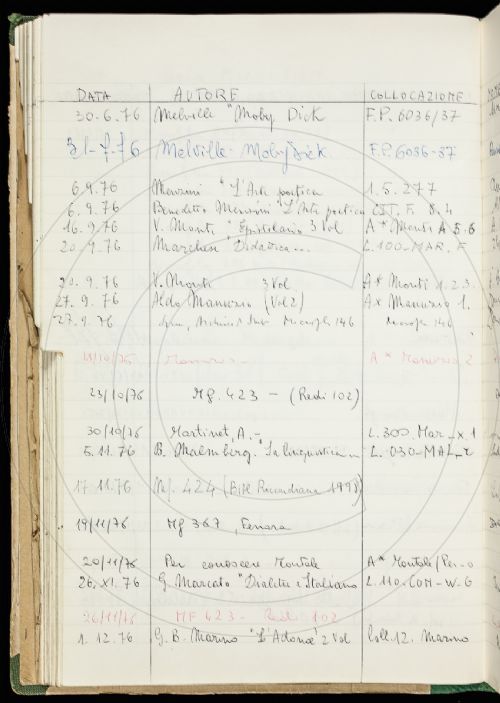 DATA AUTORE COLLOCAZIONE
30.6.76 Melville "Moby Dick F.P. 6036/37
31-7-76 Melville- Moby Dick. F.P. 6036-37
6.9.76 Menzini "L'Arte poetica 1.5.277
6.9.76 Benedetto Menzini "L'Arte poetica CIT. F. 8.4
16.9.76 V. Monti "Epistolario 3 Vol A* Monti A 5.6
20.9.76 Marchesi Didattica... L.100-MAR. F
20.9.76 V. Monti 3 Vol A* Monti 1.2.3.
27.9.76 Aldo Manuzio (Vol 2) A* Manuzio 1.
27.9.76 Microfilm 146 Microfilm 146
18/10/76 Manuzio A* Manuzio 2
23/10/76 Mf. 423 - (Redi 102)
30/10/76 Martinet, A. - L.300. Mar_x.1
5.11.76 B. Malmberg. "La linguistica... L. 030-MAL_
17.11.76 Mf. 424 (Bibl Riccardiana 1998)
19/11/76 Mf 367, Ferrara
20/11/76 Per conoscere Montale A* Montale/Per-o
26.XI.76 G. Marcato "Dialetto e Italiano L.110-COM-W-G
26/11/76 MF 423 - Redi 102
1.12.76 G.B. Marino "L'Adone" 2 Vol Coll.12. Marino